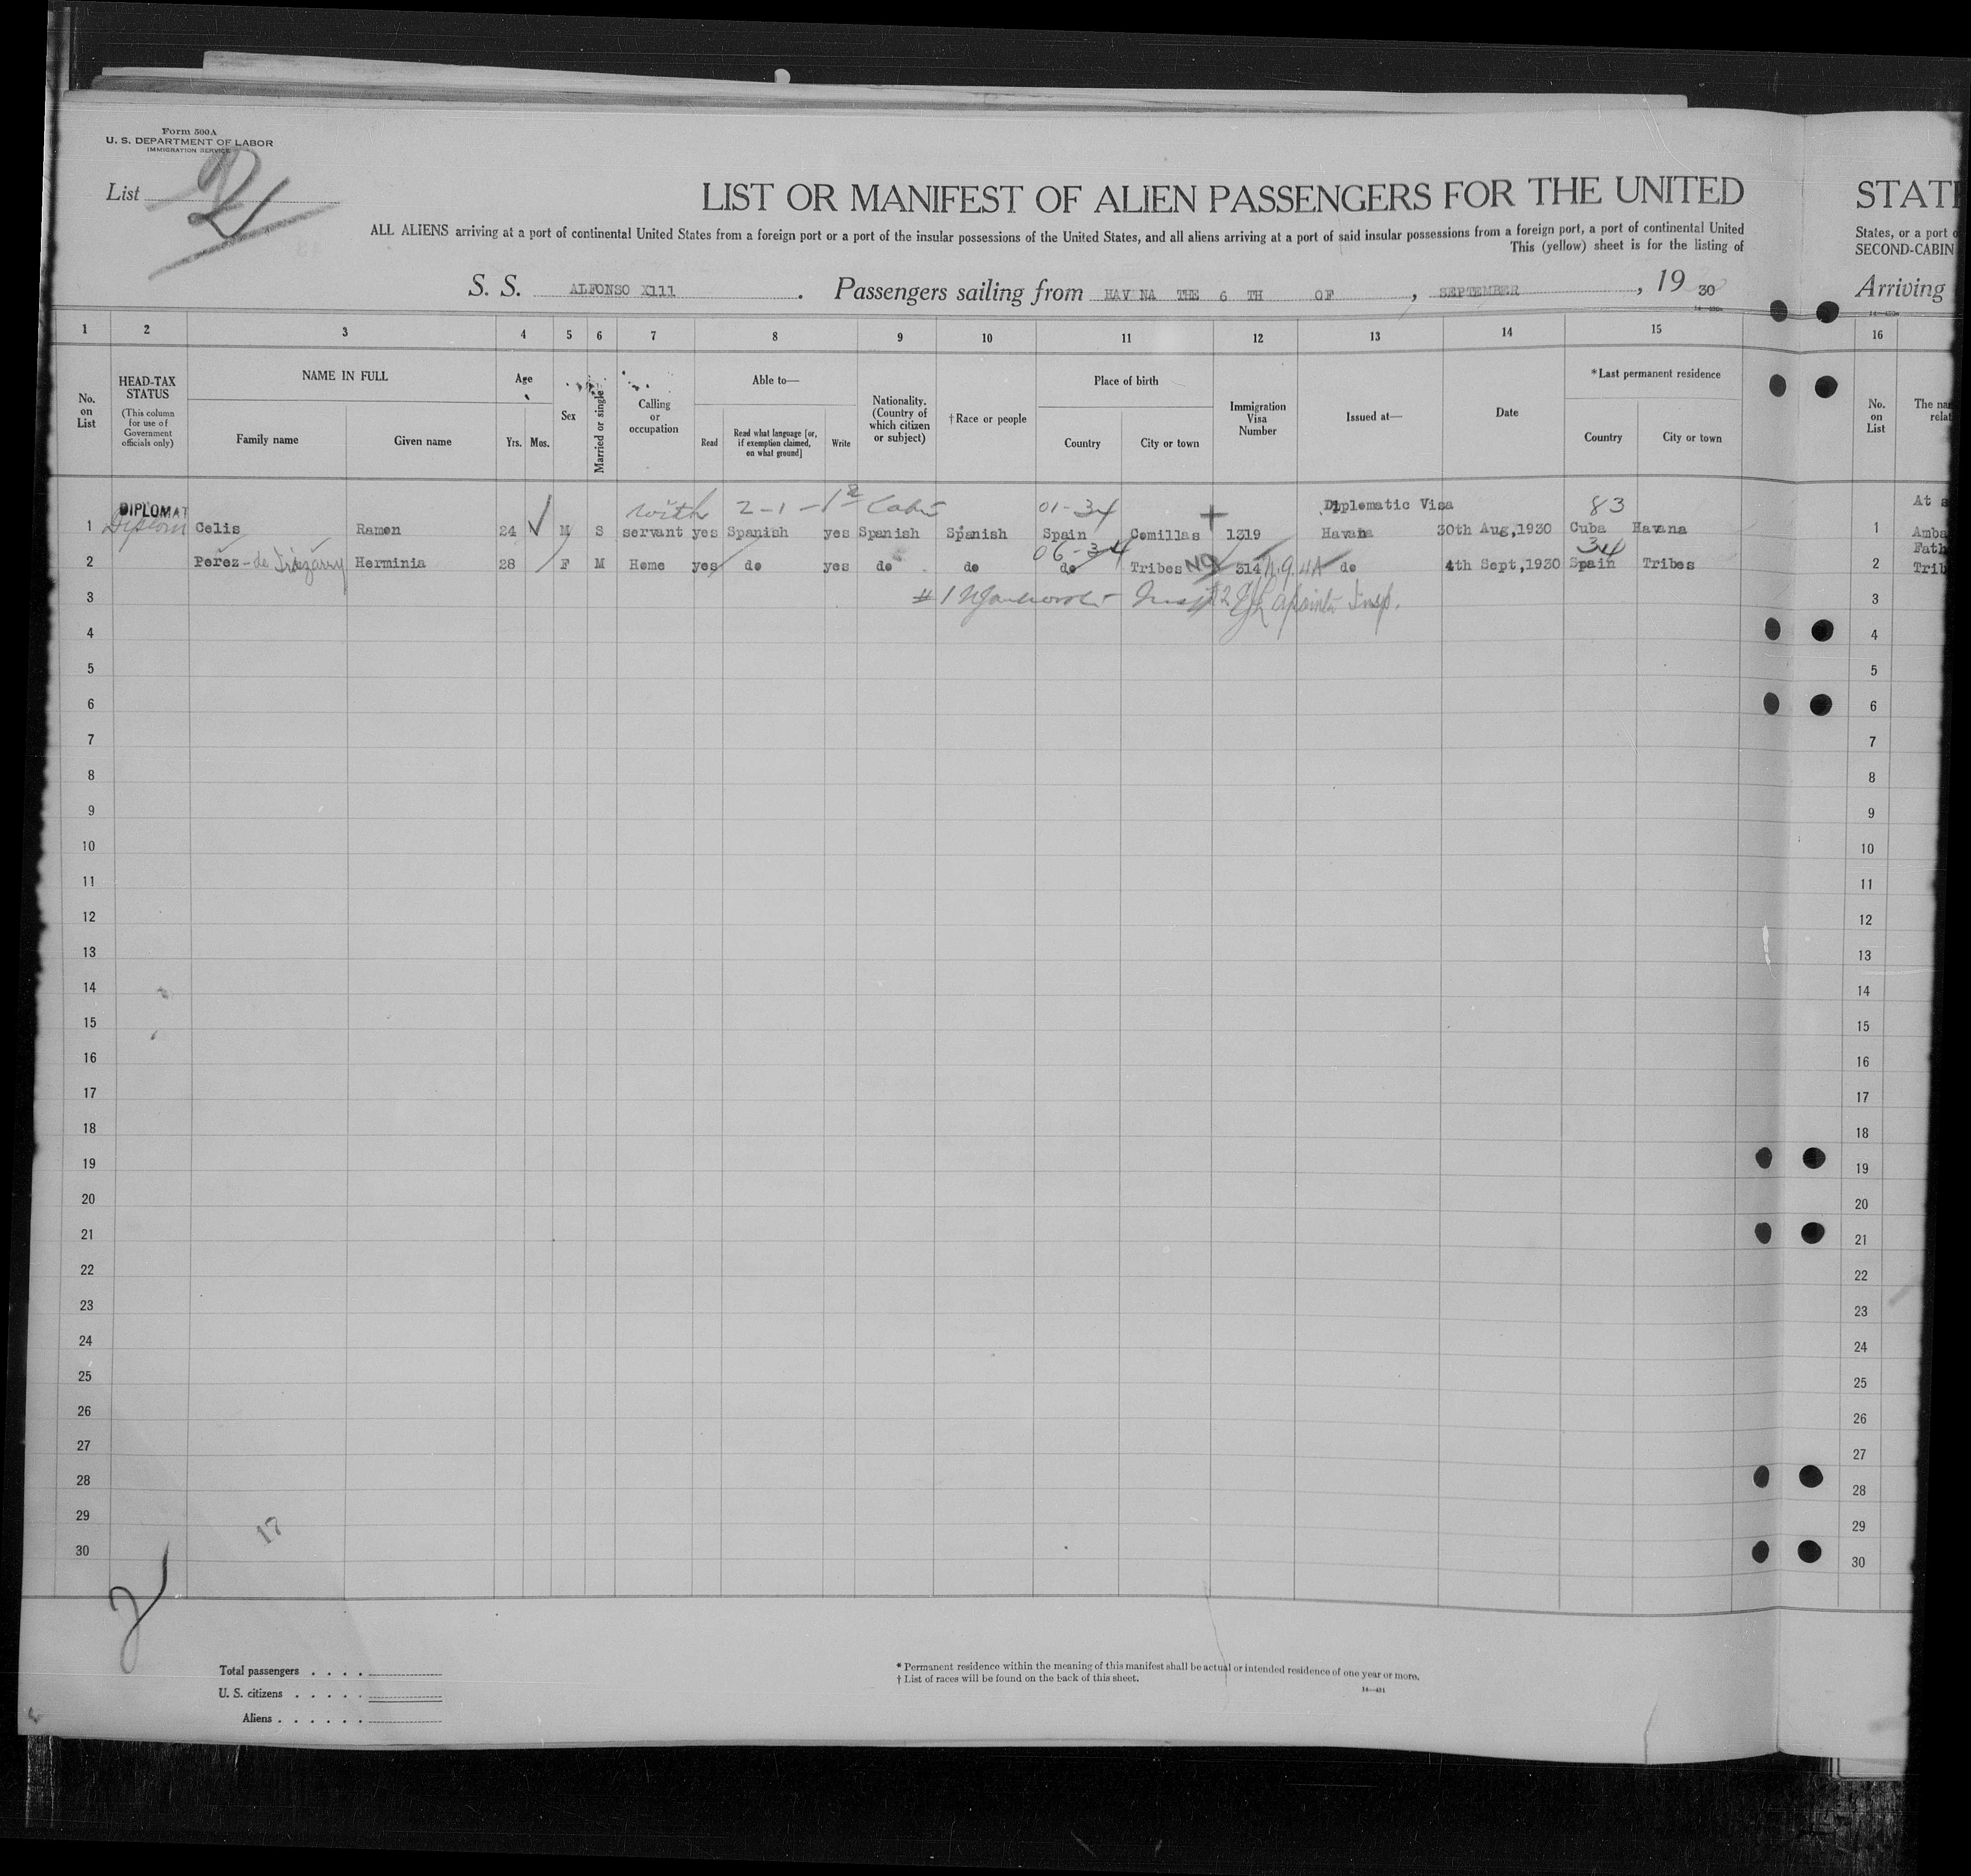 Form 500A
U. S. DEPARTMENT OF LABOR
IMMIGRATION SERVICE
List 2
LIST OR MANIFEST OF ALIEN PASSENGERS FOR THE UNITED
STAT
ALL ALIENS arriving at a port of continental United States from a foreign port or a port of the insular possessions of the United States, and all aliens arriving at a port of said insular possessions from a foreign port, a port of continental United
States, or a port o
This (yellow) sheet is for the listing of
SECOND-CABIN
S. S. ALFONSO X111 . Passengers sailing from HAVANA THE 6 TH OF , SEPTEMBER , 19 30
Arriving
1 2 3 4 5 6 7 8 9 10 11 12 13 14 15 16
No. on List
HEAD-TAX STATUS
(This column for use of Government officials only)
NAME IN FULL
Family name
Given name
Age
Yrs. Mos.
Sex
Married or single
Calling or occupation
Able to—
Read
Read what language [or, if exemption claimed, on what ground]
Write
Nationality. (Country of which citizen or subject)
† Race or people
Place of birth
Country
City or town
Immigration Visa Number
Issued at—
Date
*Last permanent residence
Country
City or town
No. on List
The na
rela
DIPLOMAT with 2-1-1 01-34 Diplomatic Visa 83 At s
1 Diplom Celis Ramon 24 M S servant yes Spanish yes Spanish Spanish Spain Comillas 1319 Havana 30th Aug,1930 Cuba Havana 1 Amba
06-34 34 Fath
2 Perez - de Herminia 28 F M Home yes do yes do do do Tribes NQ 314 do 4th Sept,1930 Spain Tribes 2 Trib
3 #1 Insp #2 Insp. 3
4 4
5 5
6 6
7 7
8 8
9 9
10 10
11 11
12 12
13 13
14 14
15 15
16 16
17 17
18 18
19 19
20 20
21 21
22 22
23 23
24 24
25 25
26 26
27 27
28 28
29 17 29
30 30
2
Total passengers . . . .
U. S. citizens . . . . .
Aliens . . . . . .
* Permanent residence within the meaning of this manifest shall be actual or intended residence of one year or more.
† List of races will be found on the back of this sheet.